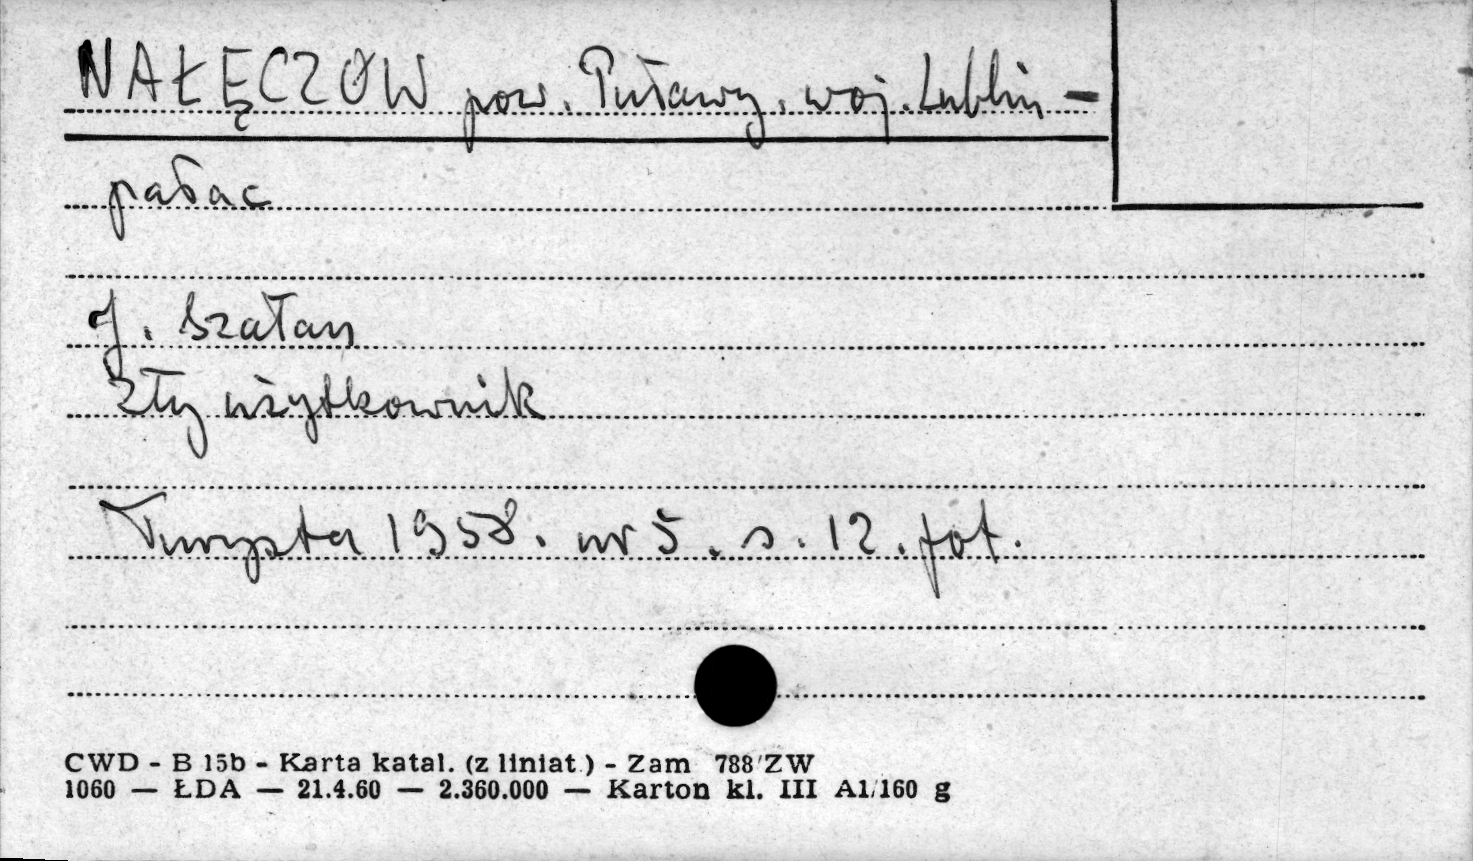 NAŁĘCZÓW pow. Puławy. woj. Lublin -
pałac
J. Szałan
Zły użytkownik
Turysta 1958. nr 5. s. 12. fot.
CWD - B 15b - Karta katal. (z liniat.) - Zam 788/ZW
1060 — ŁDA — 21.4.60 — 2.360.000 — Karton kl. III A1/160 g